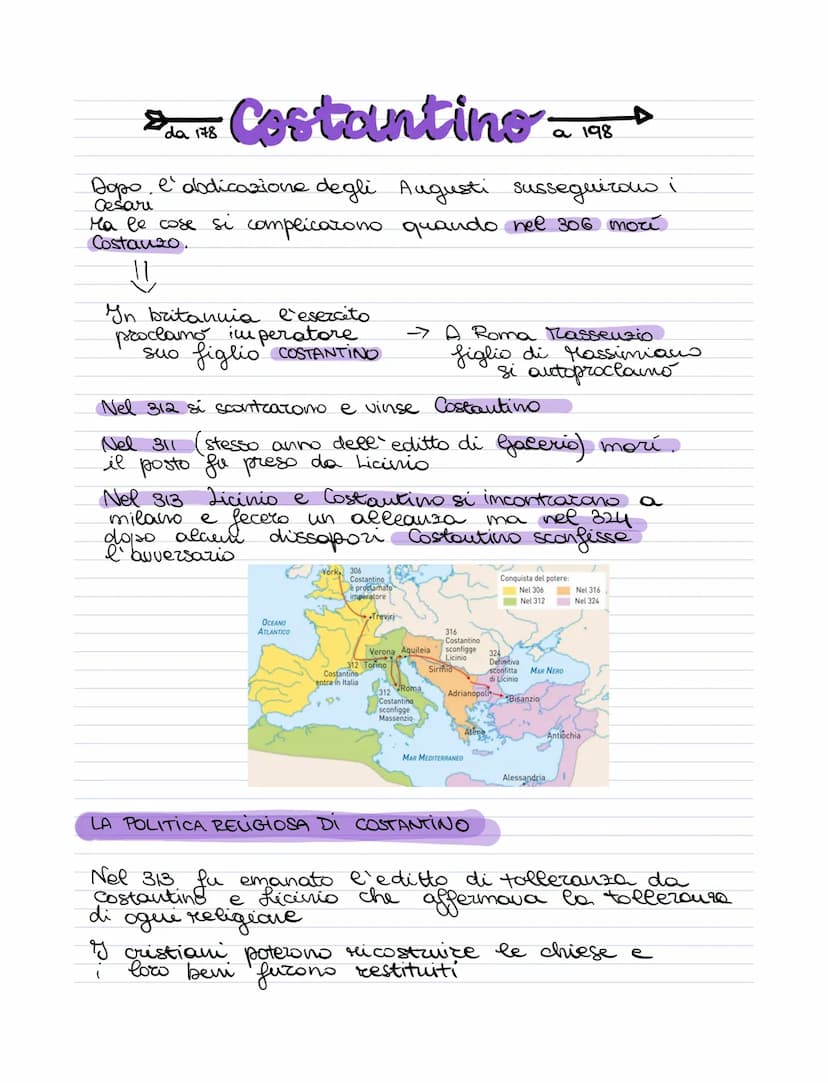 Costantino
da 178 a 198
Dopo l'abdicazione degli Augusti susseguirono i
Cesari
Ma le cose si complicarono quando nel 306 morí
Costanzo.
In britannia l'esercito
proclamò imperatore
suo figlio COSTANTINO
→ A Roma Massenzio
figlio di Massimiano
si autoproclamò
Nel 312 si scontrarono e vinse Costantino
Nel 311 (stesso anno dell'editto di Galerio) morí.
il posto fu preso da Licinio
Nel 313 Licinio e Costantino si incontrarono a
milano e fecero un alleanza ma nel 324
dopo alcuni dissapori Costantino sconfisse
l'avversario
York
306
Costantino
è proclamato
imperatore
Conquista del potere:
Nel 306 Nel 316
Nel 312 Nel 324
OCEANO
ATLANTICO
Treviri
316
Costantino
sconfigge
Licinio
Verona Aquileia
312 Torino
Costantino
entra in Italia
Sirmio
324
Definitiva
sconfitta
di Licinio
MAR NERO
Roma
312
Costantino
sconfigge
Massenzio
Adrianopoli
Bisanzio
Atene
Antiochia
MAR MEDITERRANEO
Alessandria
LA POLITICA RELIGIOSA DI COSTANTINO
Nel 313 fu emanato l'editto di tolleranza da
Costantino e Licinio che affermava la tolleranza
di ogni religione
I cristiani poterono ricostruire le chiese e
i loro beni furono restituiti